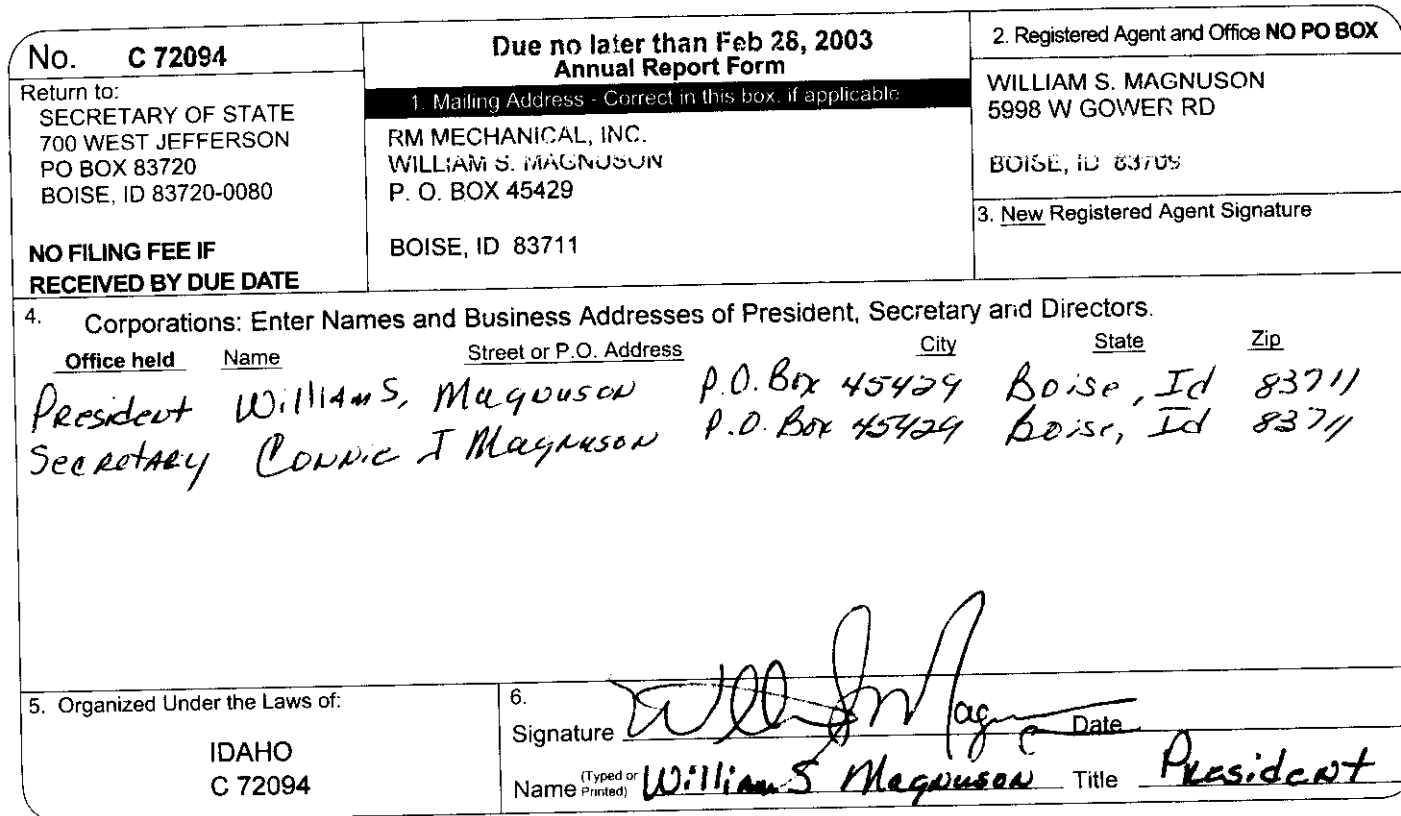 No. C 72094
Return to:
SECRETARY OF STATE
700 WEST JEFFERSON
PO BOX 83720
BOISE, ID 83720-0080
NO FILING FEE IF
RECEIVED BY DUE DATE
Due no later than Feb 28, 2003
Annual Report Form
1. Mailing Address - Correct in this box, if applicable
RM MECHANICAL, INC.
WILLIAM S. MAGNUSON
P. O. BOX 45429
BOISE, ID 83711
2. Registered Agent and Office NO PO BOX
WILLIAM S. MAGNUSON
5998 W GOWER RD
BOISE, ID 83709
3. New Registered Agent Signature
4. Corporations: Enter Names and Business Addresses of President, Secretary and Directors.
Office held Name Street or P.O. Address City State Zip
President William S, Magnuson P.O. Box 45429 Boise, Id 83711
Secretary Connie J Magnuson P.O. Box 45429 Boise, Id 83711
5. Organized Under the Laws of:
IDAHO
C 72094
6.
Signature Date
Name (Typed or Printed) William S Magnuson Title President